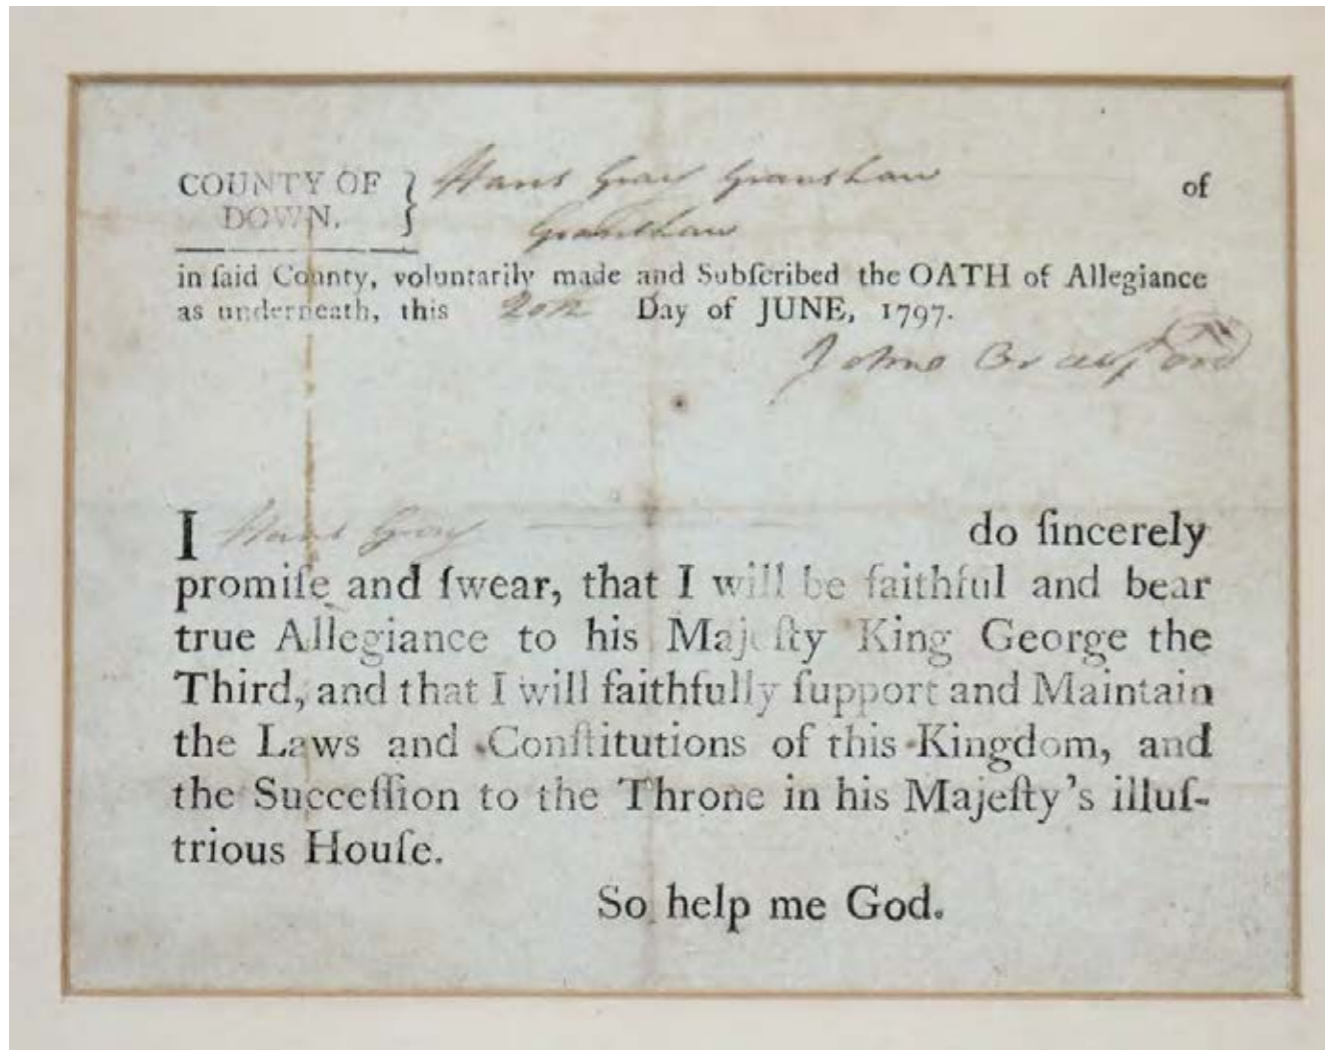 COUNTY OF } Hans Gray Granshaw of
DOWN. Granshaw
in ſaid County, voluntarily made and Subſcribed the OATH of Allegiance
as underneath, this 20th Day of JUNE, 1797.
John Crawford
I Hans Gray do ſincerely
promiſe and ſwear, that I will be faithful and bear
true Allegiance to his Majeſty King George the
Third, and that I will faithfully ſupport and Maintain
the Laws and Conſtitutions of this Kingdom, and
the Succeſſion to the Throne in his Majeſty's illuſ-
trious Houſe.
So help me God.